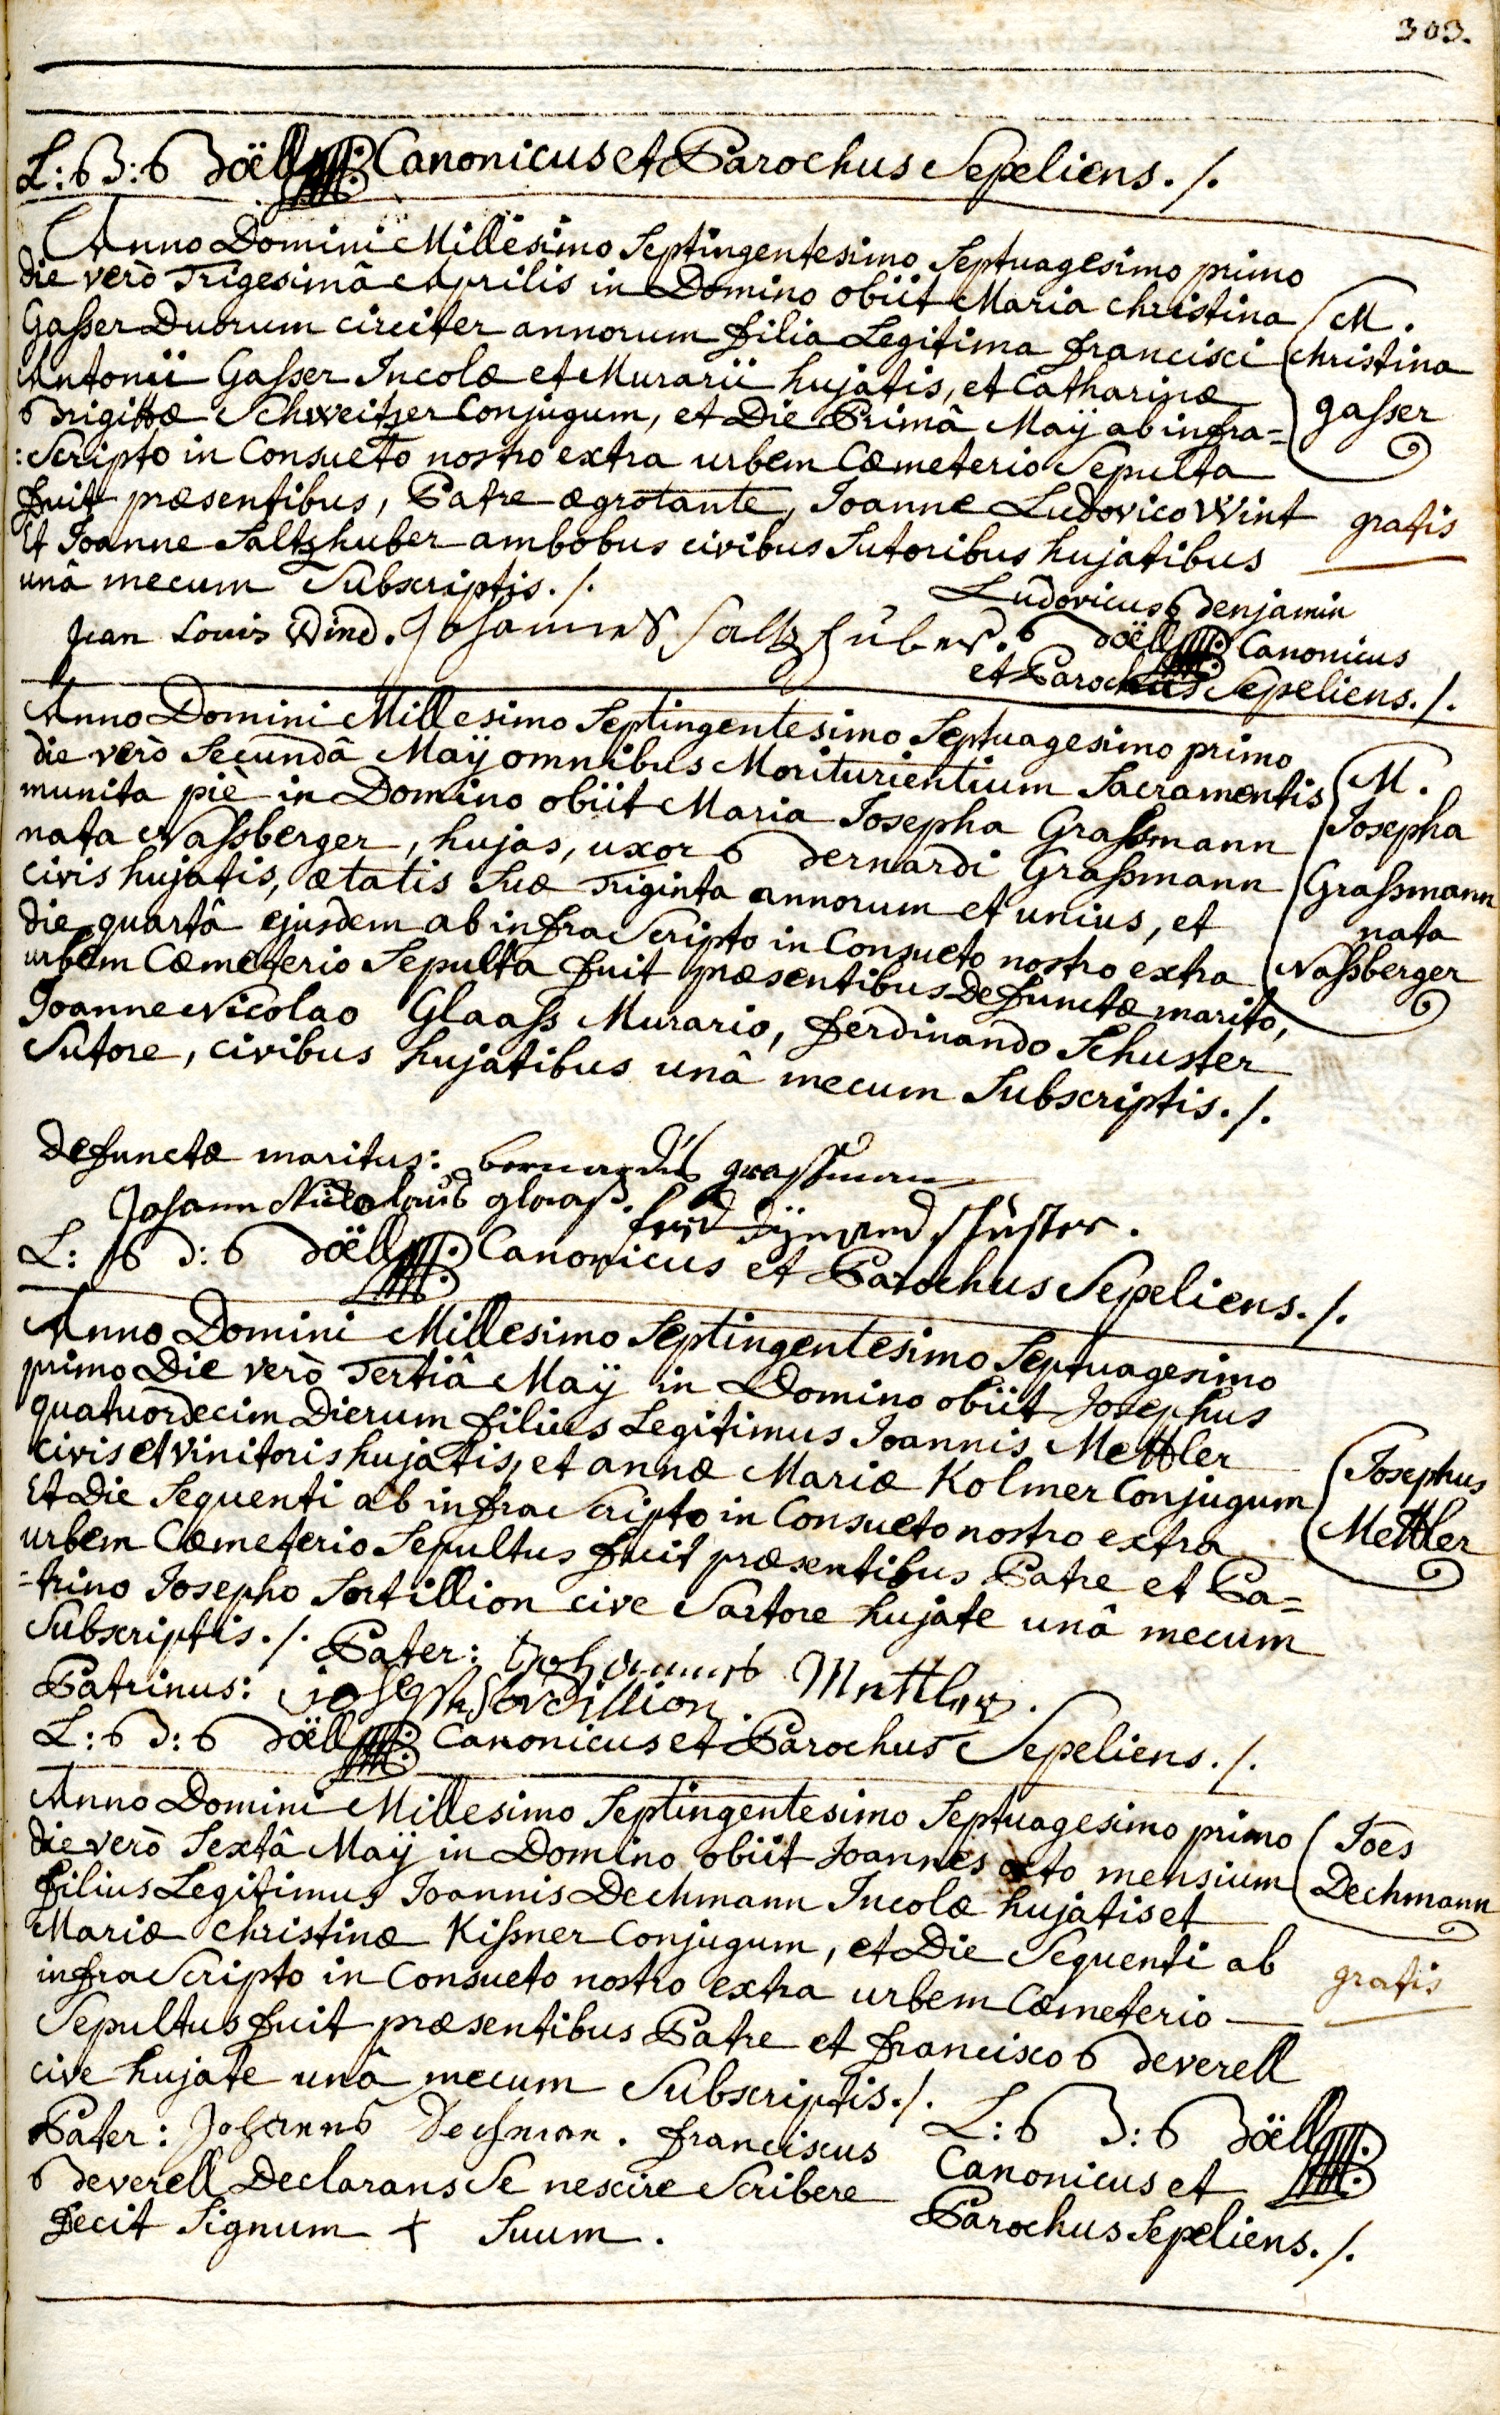 303.
L: B: Boëll Canonicus et Parochus Sepeliens ./.
Anno Domini Millesimo Septingentesimo Septuagesimo primo
die verò Trigesimâ Aprilis in Domino obiit Maria Christina
Gaſser Duorum circiter annorum filia Legitima Francisci
Antonii Gaſser Incolæ et Murarii hujatis, et Catharinæ
Brigittæ Schweitzer Conjugum, et Die Primâ Maÿ ab infra=
:Scripto in Consueto nostro extra urbem Cœmeterio Sepulta
fuit præsentibus, Patre ægrotante, Joanne Ludovico Wint
Et Joanne Saltzhuber ambobus civibus Sutoribus hujatibus
unâ mecum Subscriptis ./.
M.
Christina
gaſser
gratis
Jean Louis Wind. Johannes Saltzhuber.
Ludovicus Benjamin
Boëll Canonicus
et Parochus Sepeliens ./.
Anno Domini Millesimo Septingentesimo Septuagesimo primo
die verò Secundâ Maÿ omnibus Moriturientium Sacramentis
munita piè in Domino obiit Maria Josepha Graſsmann
nata Naſsberger, hujas, uxor Bernardi Graſsmann
civis hujatis, ætatis Suæ Triginta annorum et unius, et
die quartâ ejusdem ab infra Scripto in Consueto nostro extra
urbem Cœmeterio Sepulta fuit præsentibus Defunctæ marito,
Joanne Nicolao Glaaſs Murario, Ferdinando Schuster
Sutore, civibus hujatibus unâ mecum Subscriptis ./.
M.
Josepha
Graſsmann
nata
Naſsberger
Defunctæ maritus: bernardus graſsmann
Johann Nicolaus glaaß. schuster.
L: B: Boëll Canonicus et Parochus Sepeliens ./.
Anno Domini Millesimo Septingentesimo Septuagesimo
primo Die verò Tertiâ Maÿ in Domino obiit Josephus
quatuordecim Dierum filius Legitimus Joannis Mettler
civis et Vinitoris hujatis, et annæ Mariæ Kolmer Conjugum
Et Die Sequenti ab infra Scripto in Consueto nostro extra
urbem Cœmeterio Sepultus fuit præsentibus Patre et Pa=
=trino Josepho Sortillion cive Sartore hujate unâ mecum
Subscriptis ./. Pater: Johannes Mettler.
Josephus
Mettler
Patrinus: joseph Sordillion.
L: B: Boëll Canonicus et Parochus Sepeliens ./.
Anno Domini Millesimo Septingentesimo Septuagesimo primo
die verò Sextâ Maÿ in Domino obiit Joannes octo mensium
filius Legitimus Joannis Dechmann Incolæ hujatis et
Mariæ Christinæ Kiſsner Conjugum, et Die Sequenti ab
infra Scripto in Consueto nostro extra urbem Cœmeterio
Sepultus fuit præsentibus Patre et Francisco Beverell
cive hujate unâ mecum Subscriptis ./.
Joēs
Dechmann
gratis
Pater: Johannes Dechman. Franciscus
Beverell Declarans Se nescire Scribere
fecit Signum + Suum.
L: B: Boëll
Canonicus et
Parochus Sepeliens ./.